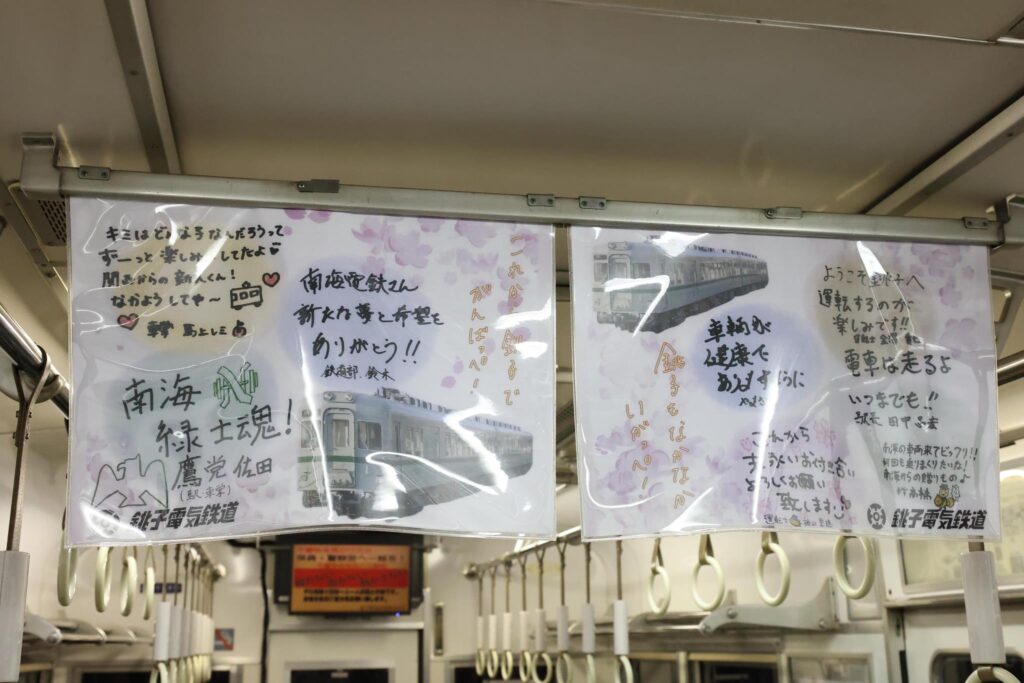 キミはどんな子なんだろうって
ずーっと楽しみにしてたよ
関西からの新人くん!
なかようしてや〜
南海電鉄さん
新たな夢と希望を
ありがとう!!
鉄道部 鈴木
これから銚子で
がんばっぺー!
南海
緑士魂!
鷹党 佐田
銚子電気鉄道
車両が
健康で
ありますように
銚子もなかなか
いがっぺー!
ようこそ銚子へ
運転するのが
楽しみです!!
電車は走るよ
いつまでも!!
これから
末永いお付き合い
よろしくお願い
致します
南海の車両来てビックリ!!
何回も乗りまくりたいな!
南海からの贈りもの♪
銚子電気鉄道